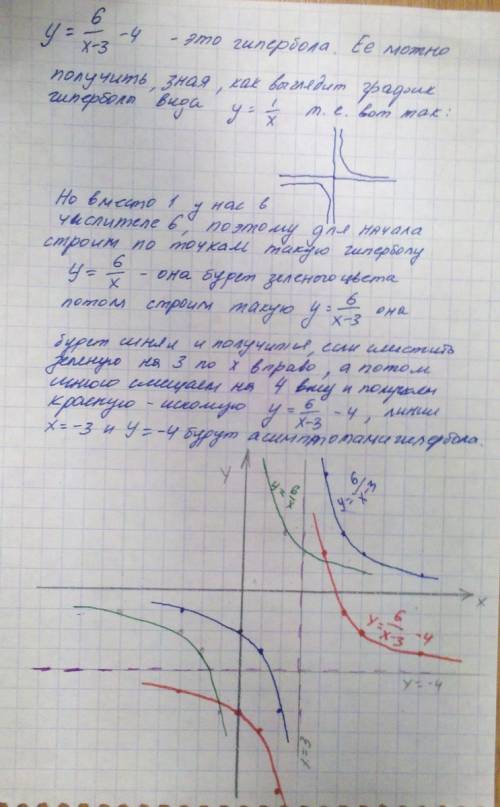 y = 6/(x-3) - 4 - это гипербола. Ее можно
получить, зная, как выглядит график
гиперболы вида y = 1/x т.е. вот так:
Но вместо 1 у нас в
числителе 6, поэтому для начала
строим по точкам такую гиперболу
y = 6/x - она будет зеленого цвета
потом строим такую y = 6/(x-3) она
будет синяя и получится, если сместить
зеленую на 3 по x вправо, а потом
синюю смещаем на 4 вниз и получаем
красную - искомую y = 6/(x-3) - 4, линии
x = -3 и y = -4 будут асимптотами гипербола.
y
y = 6/x
y = 6/x-3
x
y = 6/(x-3) - 4
y = -4
x = 3